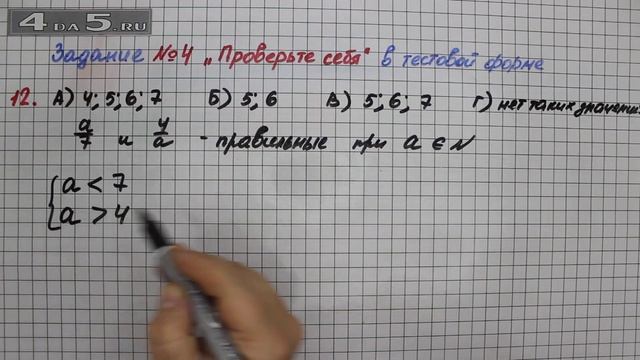 4 DA 5.RU
Задание №4 „Проверьте себя" в тестовой форме
12. А) 4; 5; 6; 7 Б) 5; 6 В) 5; 6; 7 Г) нет таких значений
a/7 и 4/a - правильные при a ∈ N
{ a < 7
a > 4